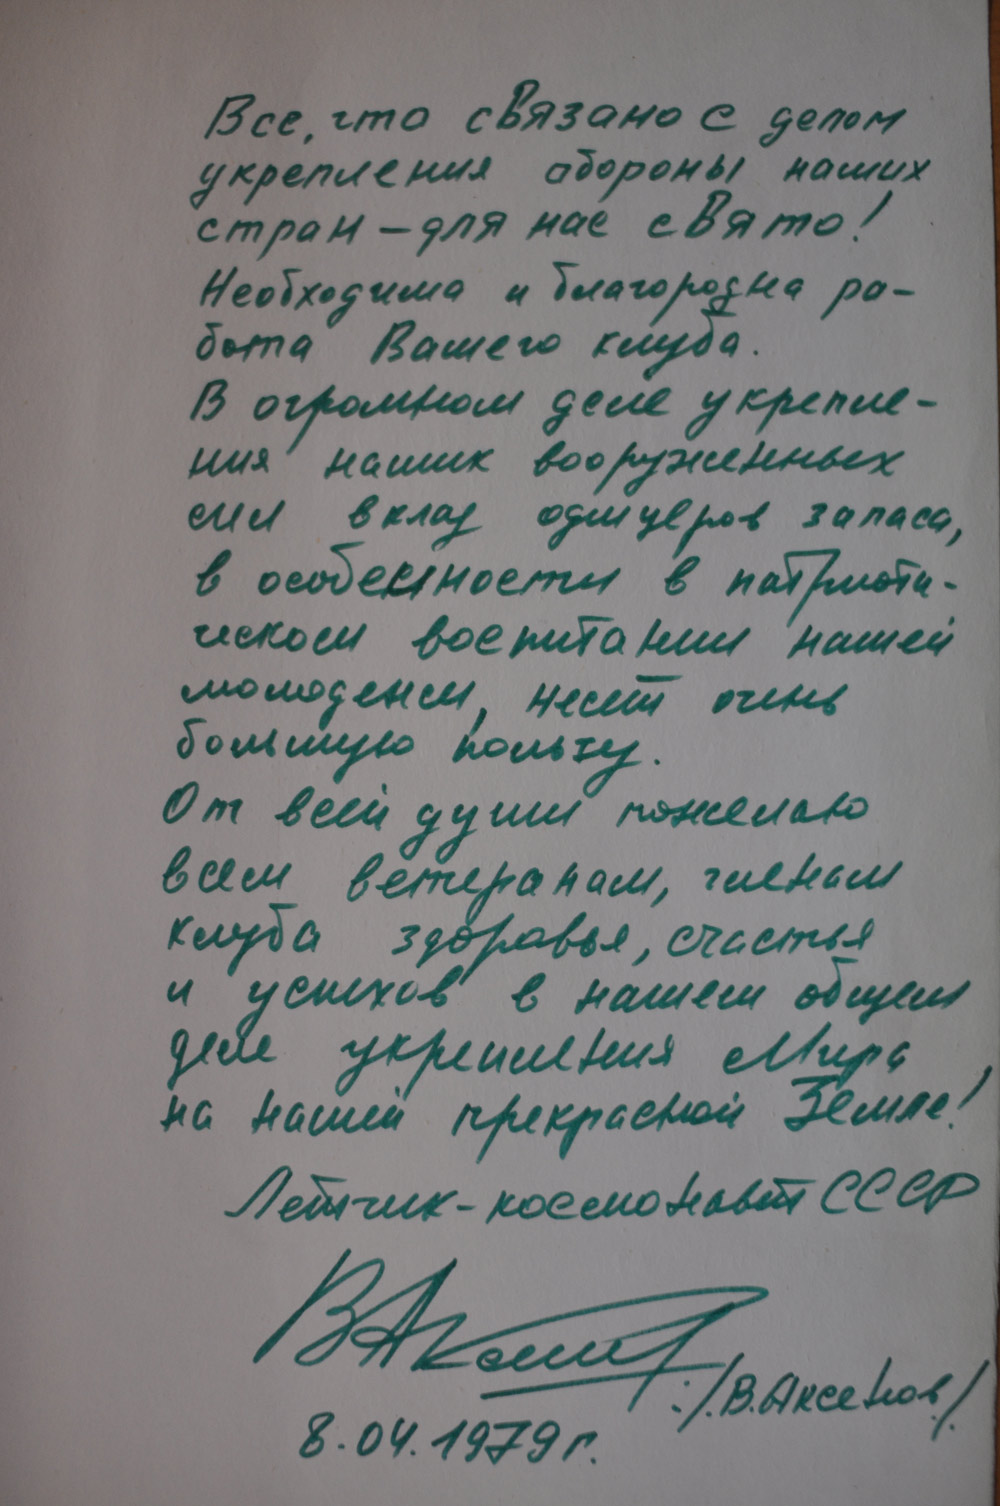 Все, что связано с делом
укрепления обороны наших
стран – для нас свято!
Необходима и благородна ра-
бота Вашего клуба.
В огромном деле укрепле-
ния наших вооруженных
сил вклад офицеров запаса,
в особенности в патриоти-
ческом воспитании нашей
молодежи, несет очень
большую пользу.
От всей души пожелаю
всем ветеранам, членам
клуба здоровья, счастья
и успехов в нашем общем
деле укрепления Мира
на нашей прекрасной Земле!
Летчик-космонавт СССР
ВАксенов
/В.Аксенов/
8.04.1979 г.